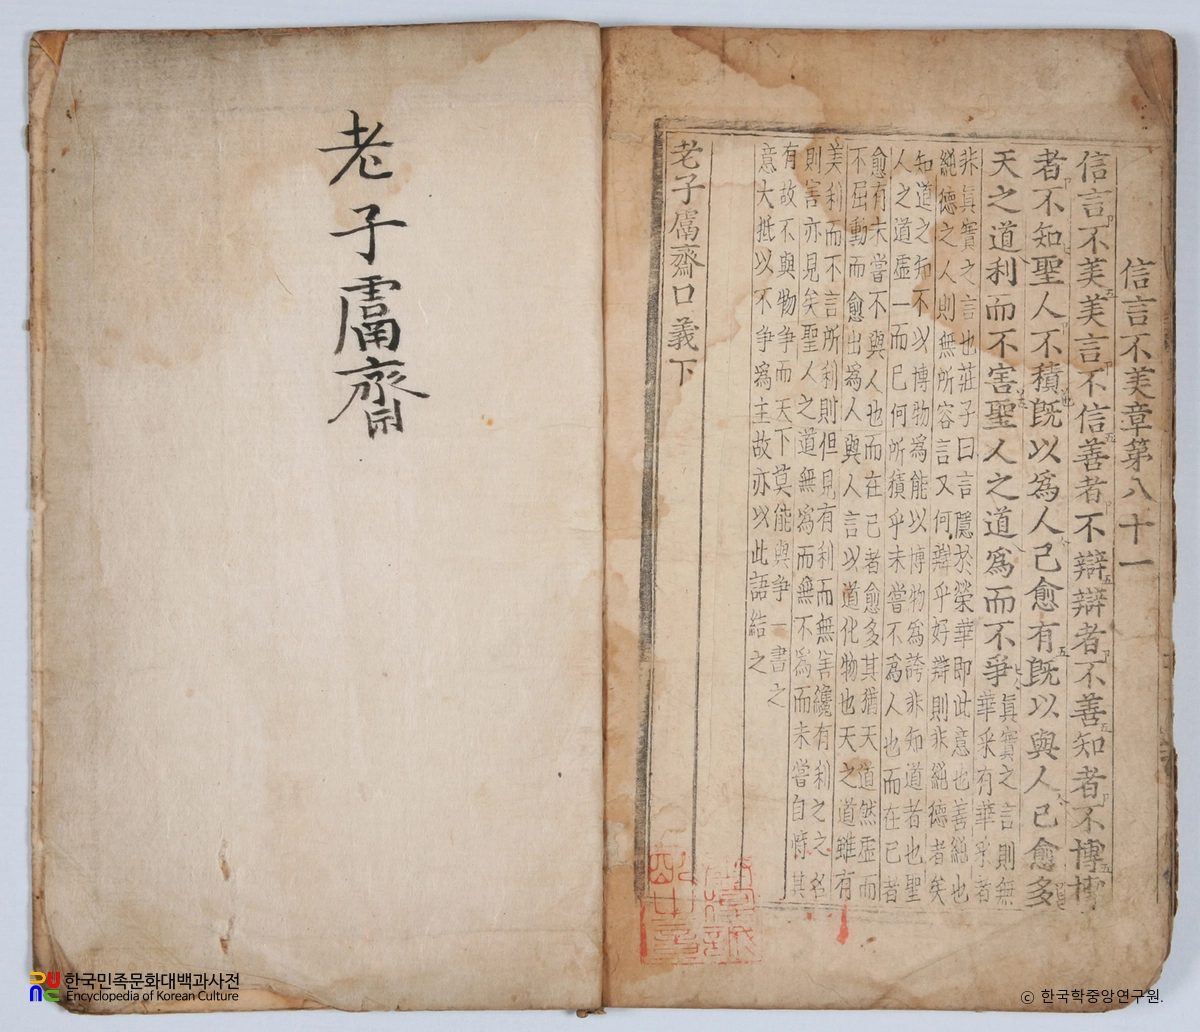 信言不美章第八十一
信言不美美言不信善者不辯辯者不善知者不博博
者不知聖人不積旣以爲人己愈有旣以與人己愈多
天之道利而不害聖人之道爲而不爭
眞實之言則無
華采有華采者
非眞實之言也莊子曰言隱於榮華即此意也善純也
純德之人則無所容言又何辯乎好辯則非純德者矣
知道之知不以博物爲能以博物爲誇非知道者也聖
人之道虛一而已何所積乎未嘗不爲人也而在己者
愈有未嘗不與人也而在己者愈多其猶天道然虛而
不屈動而愈出爲人與人言以道化物也天之道雖有
美利而不言所利則但見有利而無害纔有利之之名
則害亦見矣聖人之道無爲而無不爲而未嘗自恃其
有故不與物爭而天下莫能與爭一書之
意大抵以不爭爲主故亦以此語結之
老子鬳齋口義下
老子鬳齋
한국민족문화대백과사전
Encyclopedia of Korean Culture
ⓒ 한국학중앙연구원.